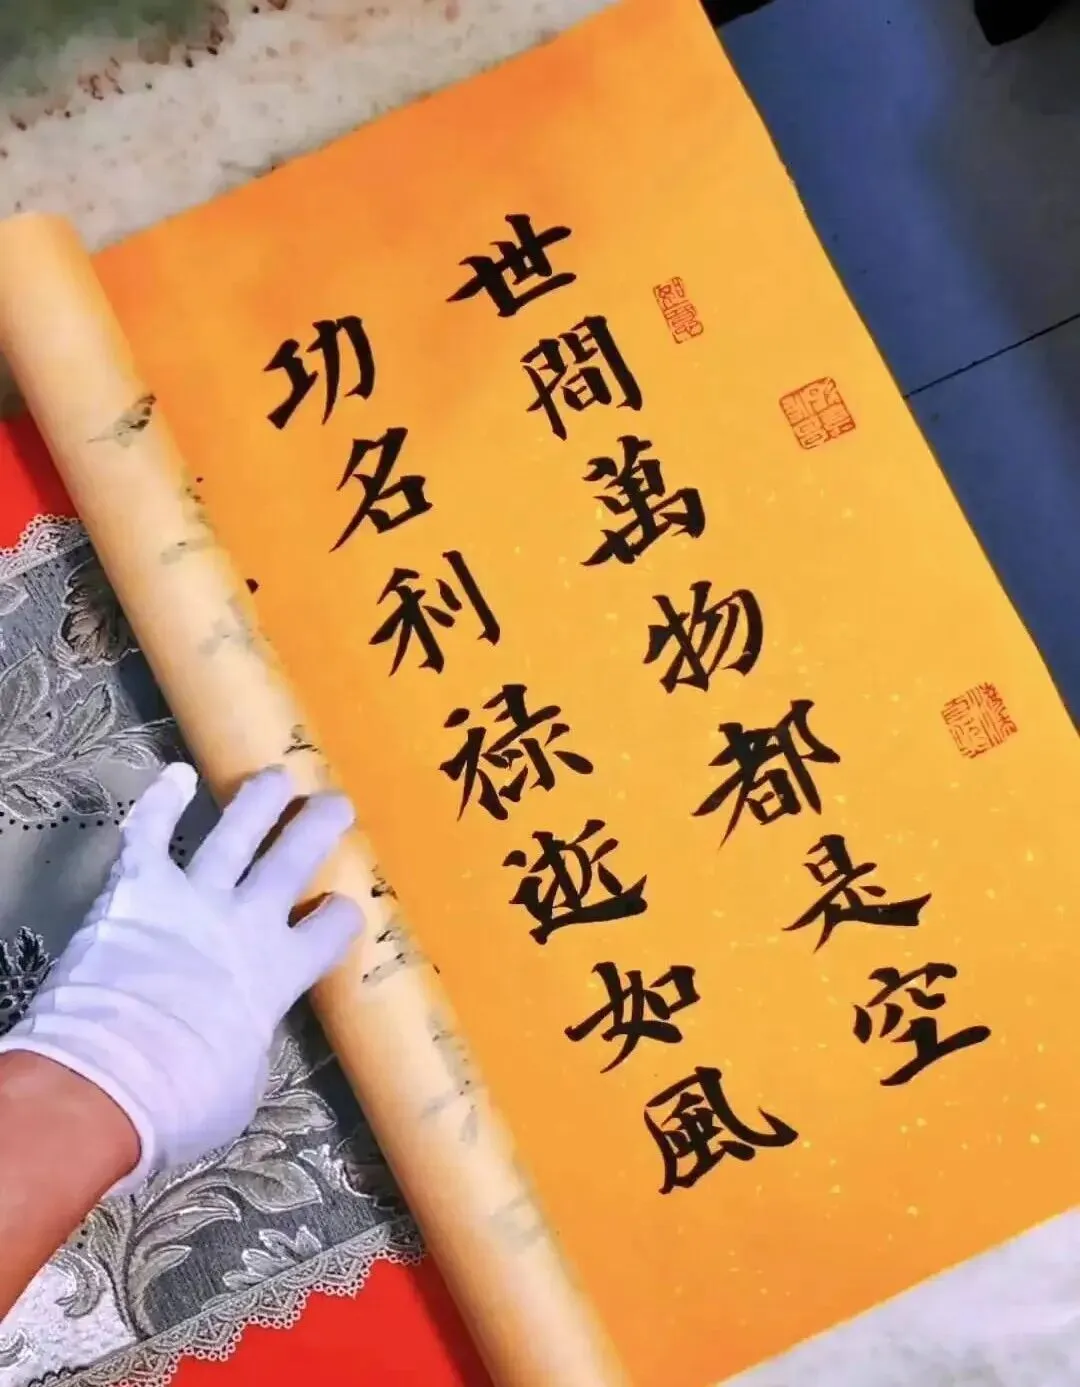 世間萬物都是空
功名利禄逝如風
如意